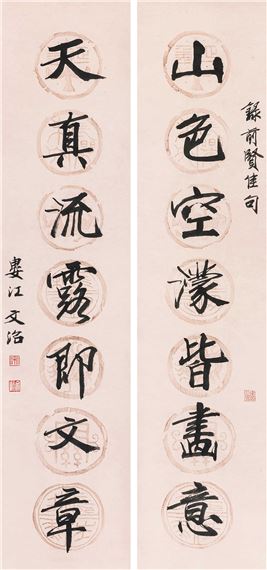 錄前賢佳句
山色空濛皆畫意
天真流露即文章
婁江文治